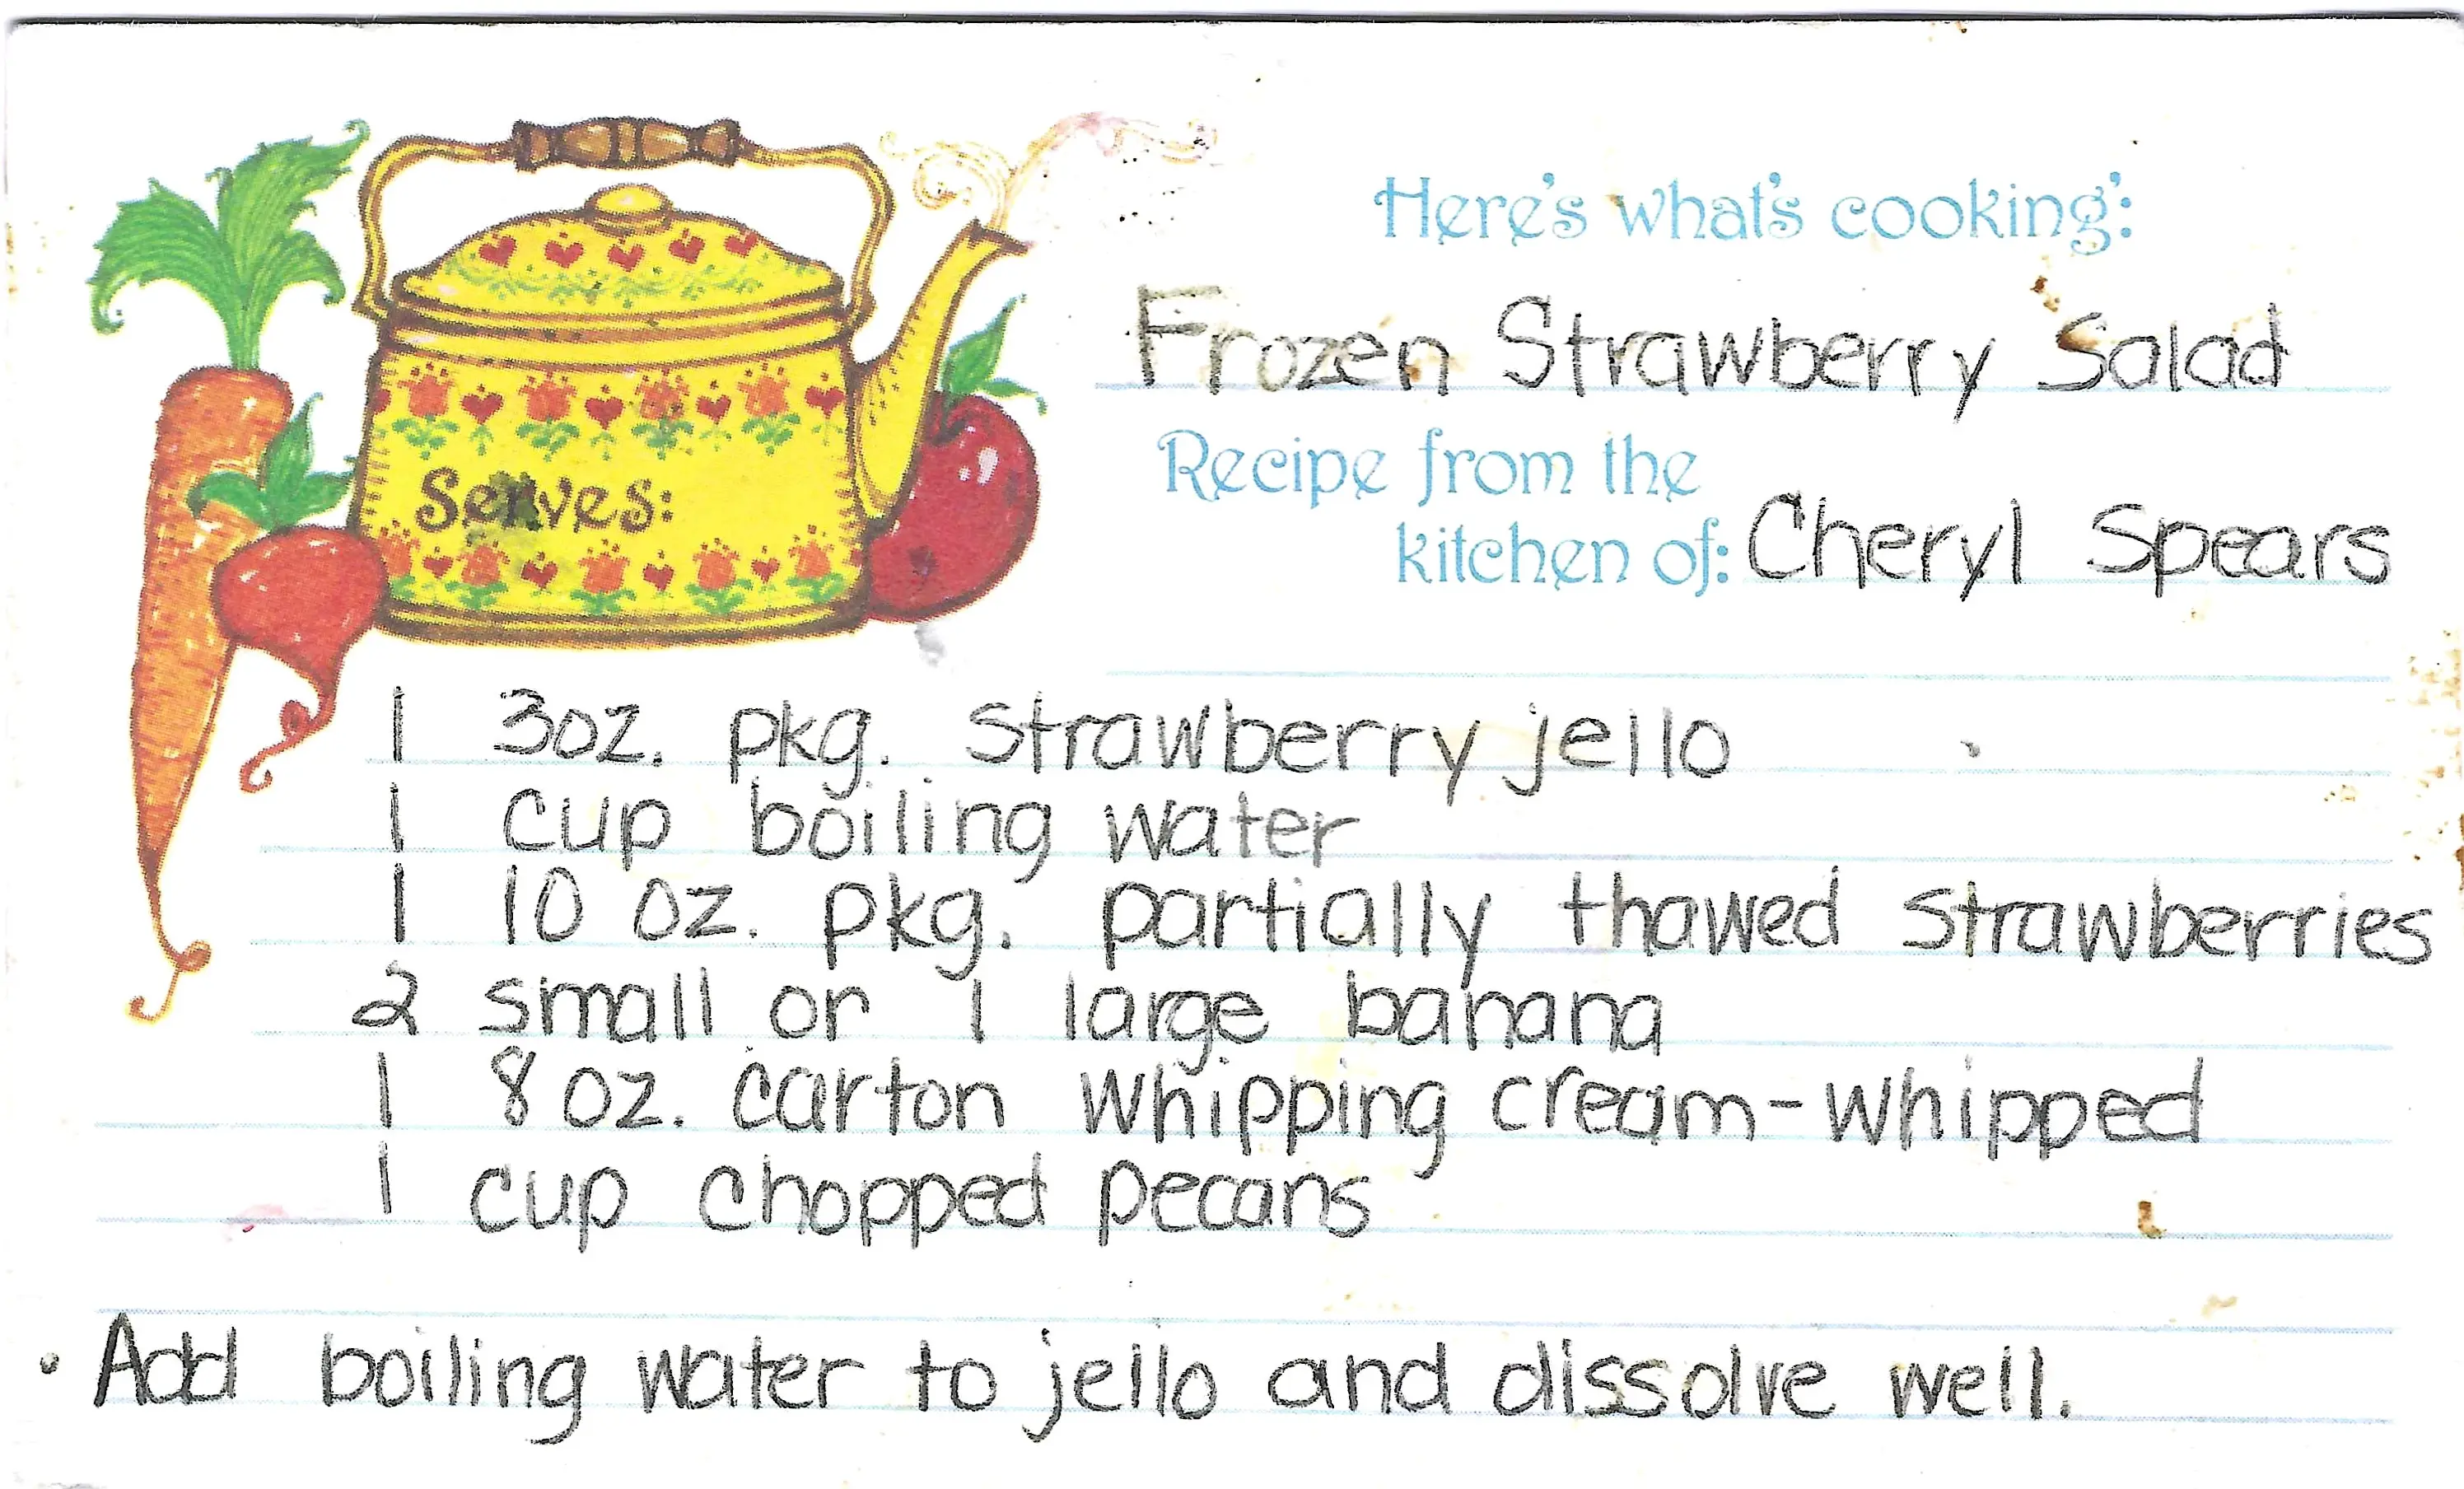 Here's what's cooking:
Frozen Strawberry Salad
Recipe from the
kitchen of: Cheryl Spears
Serves:
1 3oz. pkg. strawberry jello
1 cup boiling water
1 10 oz. pkg. partially thawed strawberries
2 small or 1 large banana
1 8 oz. carton whipping cream-whipped
1 cup chopped pecans
• Add boiling water to jello and dissolve well.